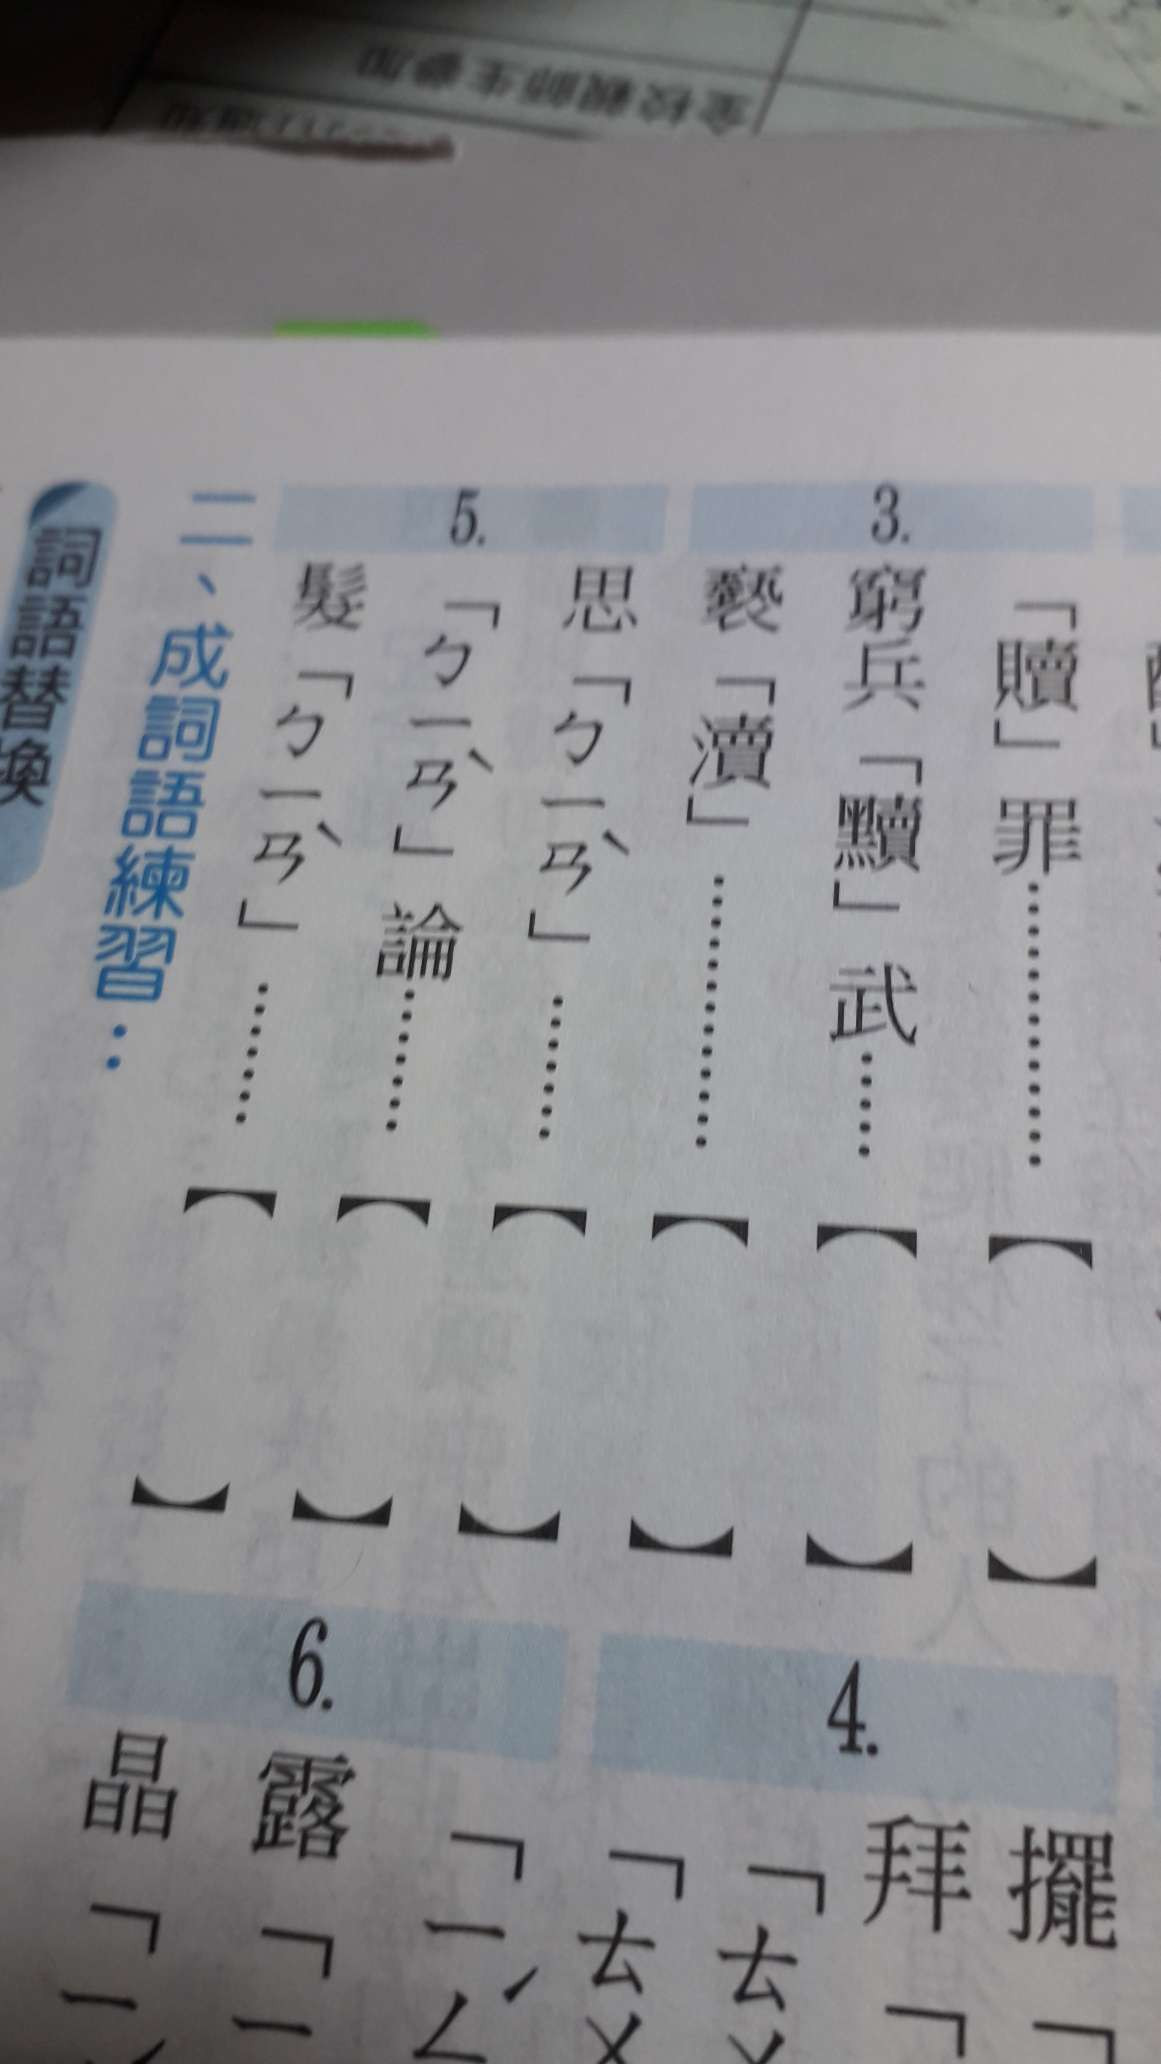 全校親師生參加
3.
「贖」罪…………
窮兵「黷」武……
褻「瀆」…………
【 】
【 】
【 】
4.
擺「
拜「
「ㄊㄨ
「ㄊㄨ
5.
思「ㄅㄧㄢˋ」……
「ㄅㄧㄢˋ」論……
髮「ㄅㄧㄢˋ」……
【 】
【 】
【 】
6.
「ㄧㄥˊ
露「ㄧ
晶「ㄧ
二、成詞語練習：
詞語替換